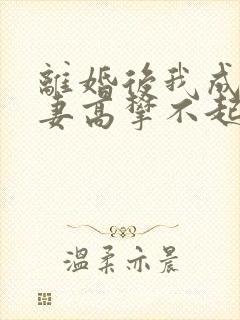 離婚後我成
妻高攀不起
溫柔亦晨